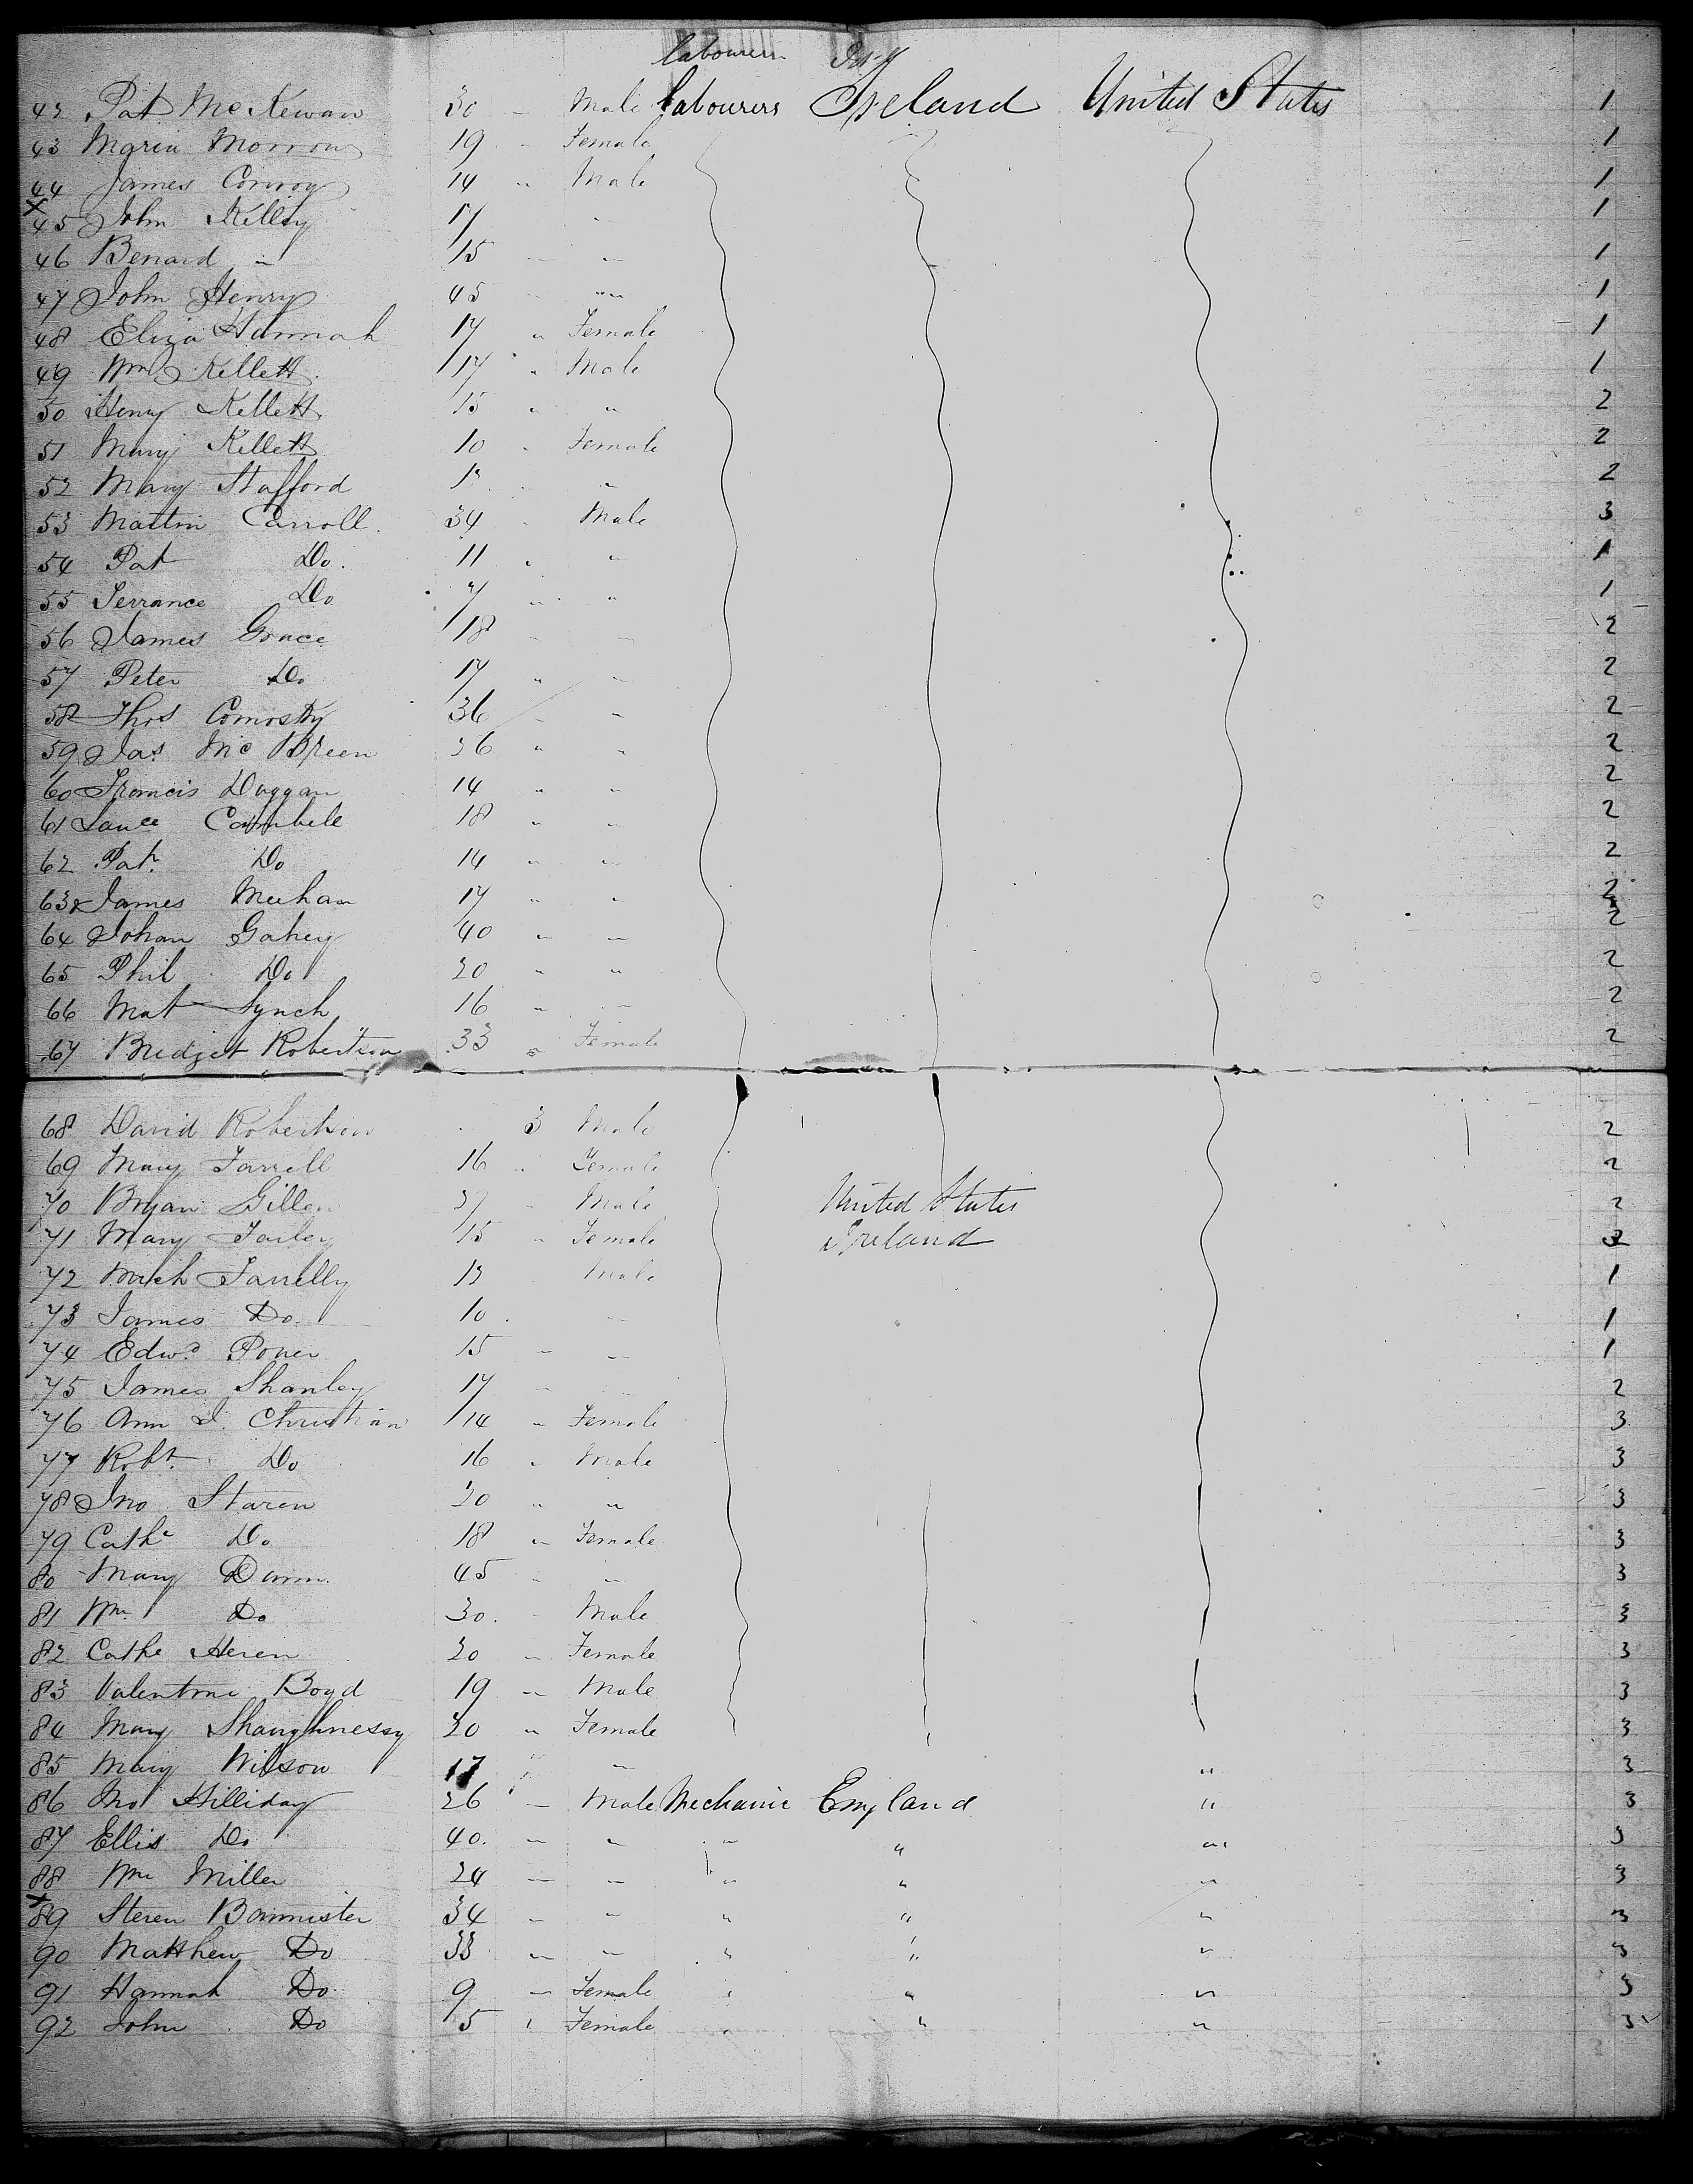 labourers
42 Pat McKewan 30 Male labourers Ireland United States 1
43 Maria Morrow 19 " Female 1
44 James Conroy 14 " Male 1
45 John Kelly 17 " 1
46 Benard " 15 " " 1
47 John Henry 45 " " 1
48 Eliza Hannah 17 " Female 1
49 Wm Kellett 17 " Male 1
50 Henry Kellett 15 " " 2
51 Mary Kellett 10 " Female 2
52 Mary Stafford " " 2
53 Martin Carroll 34 " Male 3
54 Pat Do. 11 " " 1
55 Terrance Do 7 " " 1
56 James Grace 18 " " 2
57 Peter Do 17 " " 2
58 Thos 36 " " 2
59 Jas. McBreen 26 " " 2
60 Francis Duggan 14 " " 2
61 Lance Cambele 18 " " 2
62 Pat. Do 14 " " 2
63 James Meehan 17 " " 2
64 Johan Gahey 40 " " 2
65 Phil Do 20 " " 2
66 Mat Lynch 16 " " 2
67 Bridget Robertson 33 " Female 2
68 David Robertson 3 Male 2
69 Mary Farrell 16 " Female 2
70 Bryan Gillen " Male United States 2
71 Mary Farley 15 " Female Ireland
72 Mich Farrelly 13 Male 1
73 James Do. 10 " 1
74 Edwd Power 15 " " 1
75 James Shanley 17 " " 2
76 Ann J. Christian 14 " Female 3
77 Robt. Do 16 " Male 3
78 Jno Staren 30 " " 3
79 Cathe Do 18 " Female 3
80 Mary Dann. 45 " " 3
81 Wm Do 30. " Male 3
82 Cathe Heren 20 " Female 3
83 Valentine Boyd 19 " Male 3
84 Mary Shaughnessy 20 " Female 3
85 Mary Wilson 17 " " 3
86 Jno Hilliday 26 " Male Mechanic England " 3
87 Ellis Do 40. " " " " " 3
88 Wm Miller 24 " " " " " 3
89 Steven Bannister 34 " " " " " 3
90 Matthew Do 33 " " " " " 3
91 Hannah Do 9 " Female " " " 3
92 John Do 5 " Female " " " 3